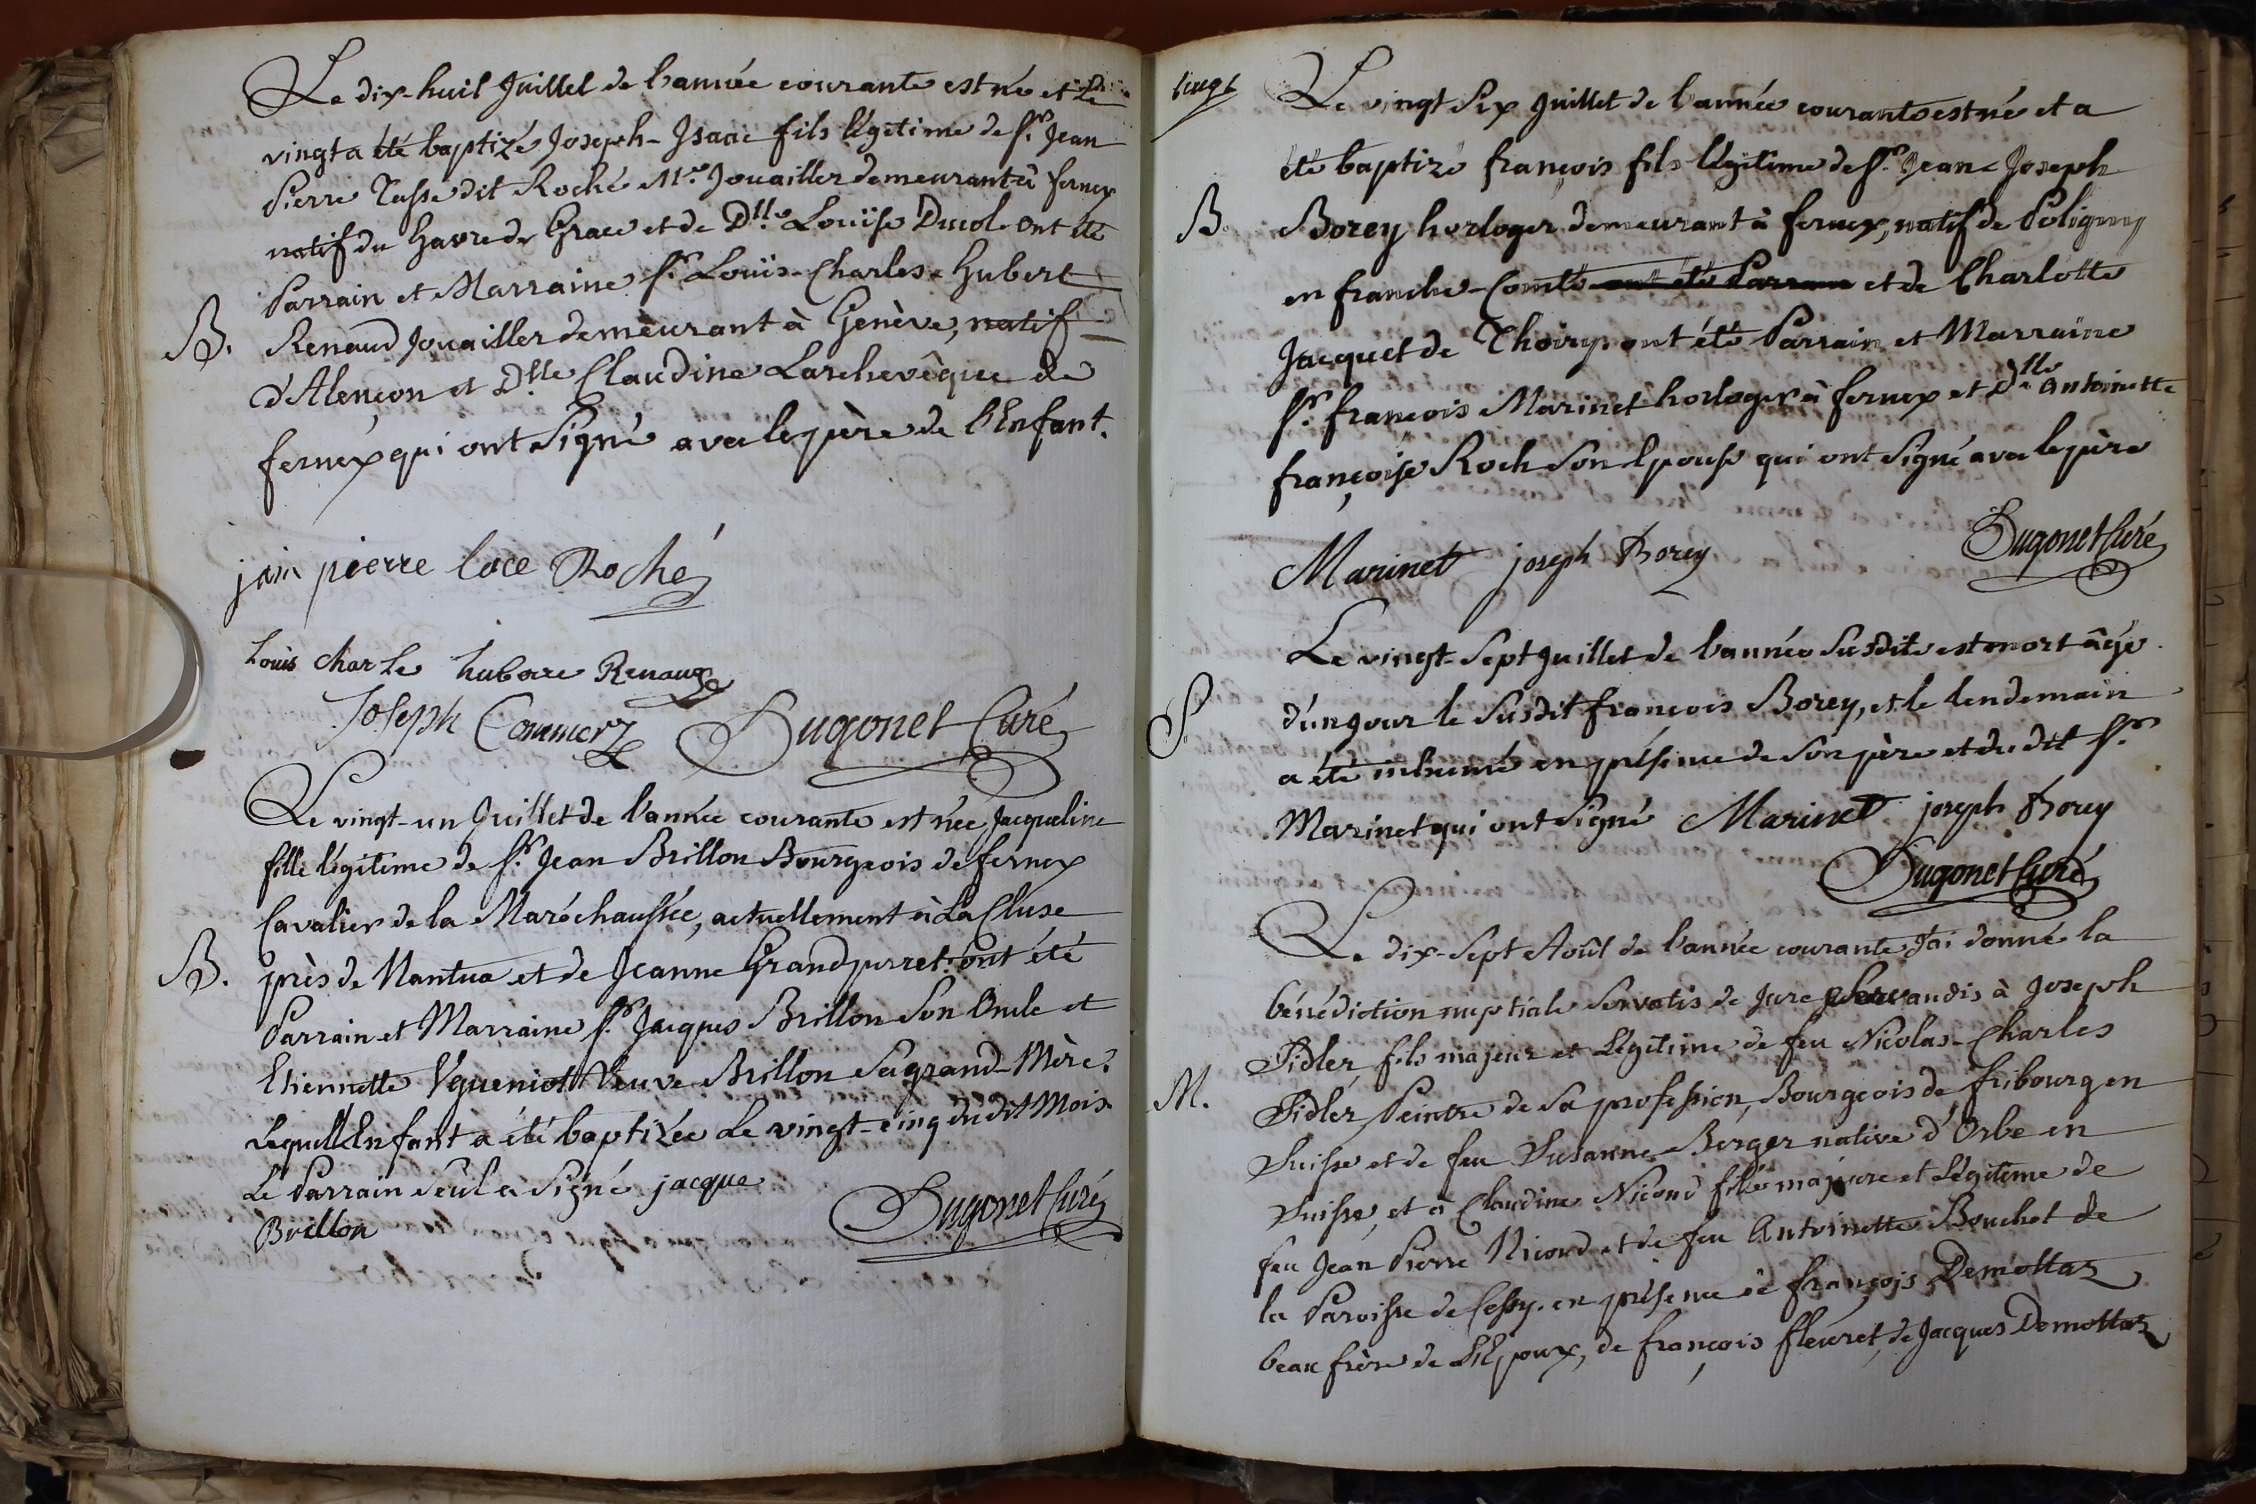 Le dix-huit Juillet de l'année courante est né et Le
vingt a été baptizé Joseph-Isaac fils légitime de Sr. Jean
Pierre Tasse dit Roché Md. Jouaillier demeurant à fernex
natif du Havre de Grace et de Dlle. Louïse Ducol. ont été
Parrain et Marraine Sr. Louïs-Charles-Hubert
B. Renaud Jouaillier demeurant à Genève, natif
d'Alençon et Dlle Claudine Larchevêque de
fernex qui ont Signé avec le père de l'Enfant.
jain pierre lace Roché
Louis charle hubere Renaud
Joseph Commerz Dugonet Curé
Le vingt-un Juillet de l'année courante est née Jacqueline
fille légitime de Sr. Jean Brillon Bourgeois de fernex
Cavalier de la Maréchaussée, actuellement à La Cluse
B. près de Nantua et de Jeanne Grandperret. ont été
Parrain et Marraine Sr. Jacques Brillon Son Oncle et
Etiennette Veuve Brillon Sa grand-Mère.
Lequel Enfant a été baptizée Le vingt-cinq du dit Mois.
Le Parrain seul a Signé. jacque
Brillon Dugonet Curé
vingt
Le vingt Six Juillet de l'année courante est né et a
été baptizé françois fils légitime de Sr. Jean-Joseph
B. Borey horloger demeurant à fernex, natif de Poligny
en franche-Comté ont été Parrain et de Charlotte
Jacquet de Thoiry. ont été Parrain et Marraine
Sr. françois Marinet horloger à fernex et Dlle Antoinette
françoise Roch Son Epouse qui ont Signé avec le père
Marinet joseph Borey Dugonet Curé
Le vingt-Sept Juillet de l'année Susdite est mort âgé
S. d'un jour le Susdit françois Borey, et le lendemain
a été inhumé en présence de Son père et du dit Sr.
Marinet qui ont Signé Marinet joseph Borey
Dugonet Curé
Le dix-Sept Août de l'année courante J'ai donné la
bénédiction nuptiale Servatis de Jure Servandis à Joseph
Fidler, fils majeur et Légitime de feu Nicolas-Charles
M. Fidler Peintre de Sa profession, Bourgeois de fribourg en
Suisse et de feu Susanne Berger native d'Orbe en
Suisse, et à Claudine Nicond fille majeure et Légitime de
feu Jean Pierre Nicond et de feu Antoinette Bouchet de
la Paroisse de Cessy. en présence de françois Demottaz
beau frère de L'Epoux, de françois fleuret, de Jacques Demottaz